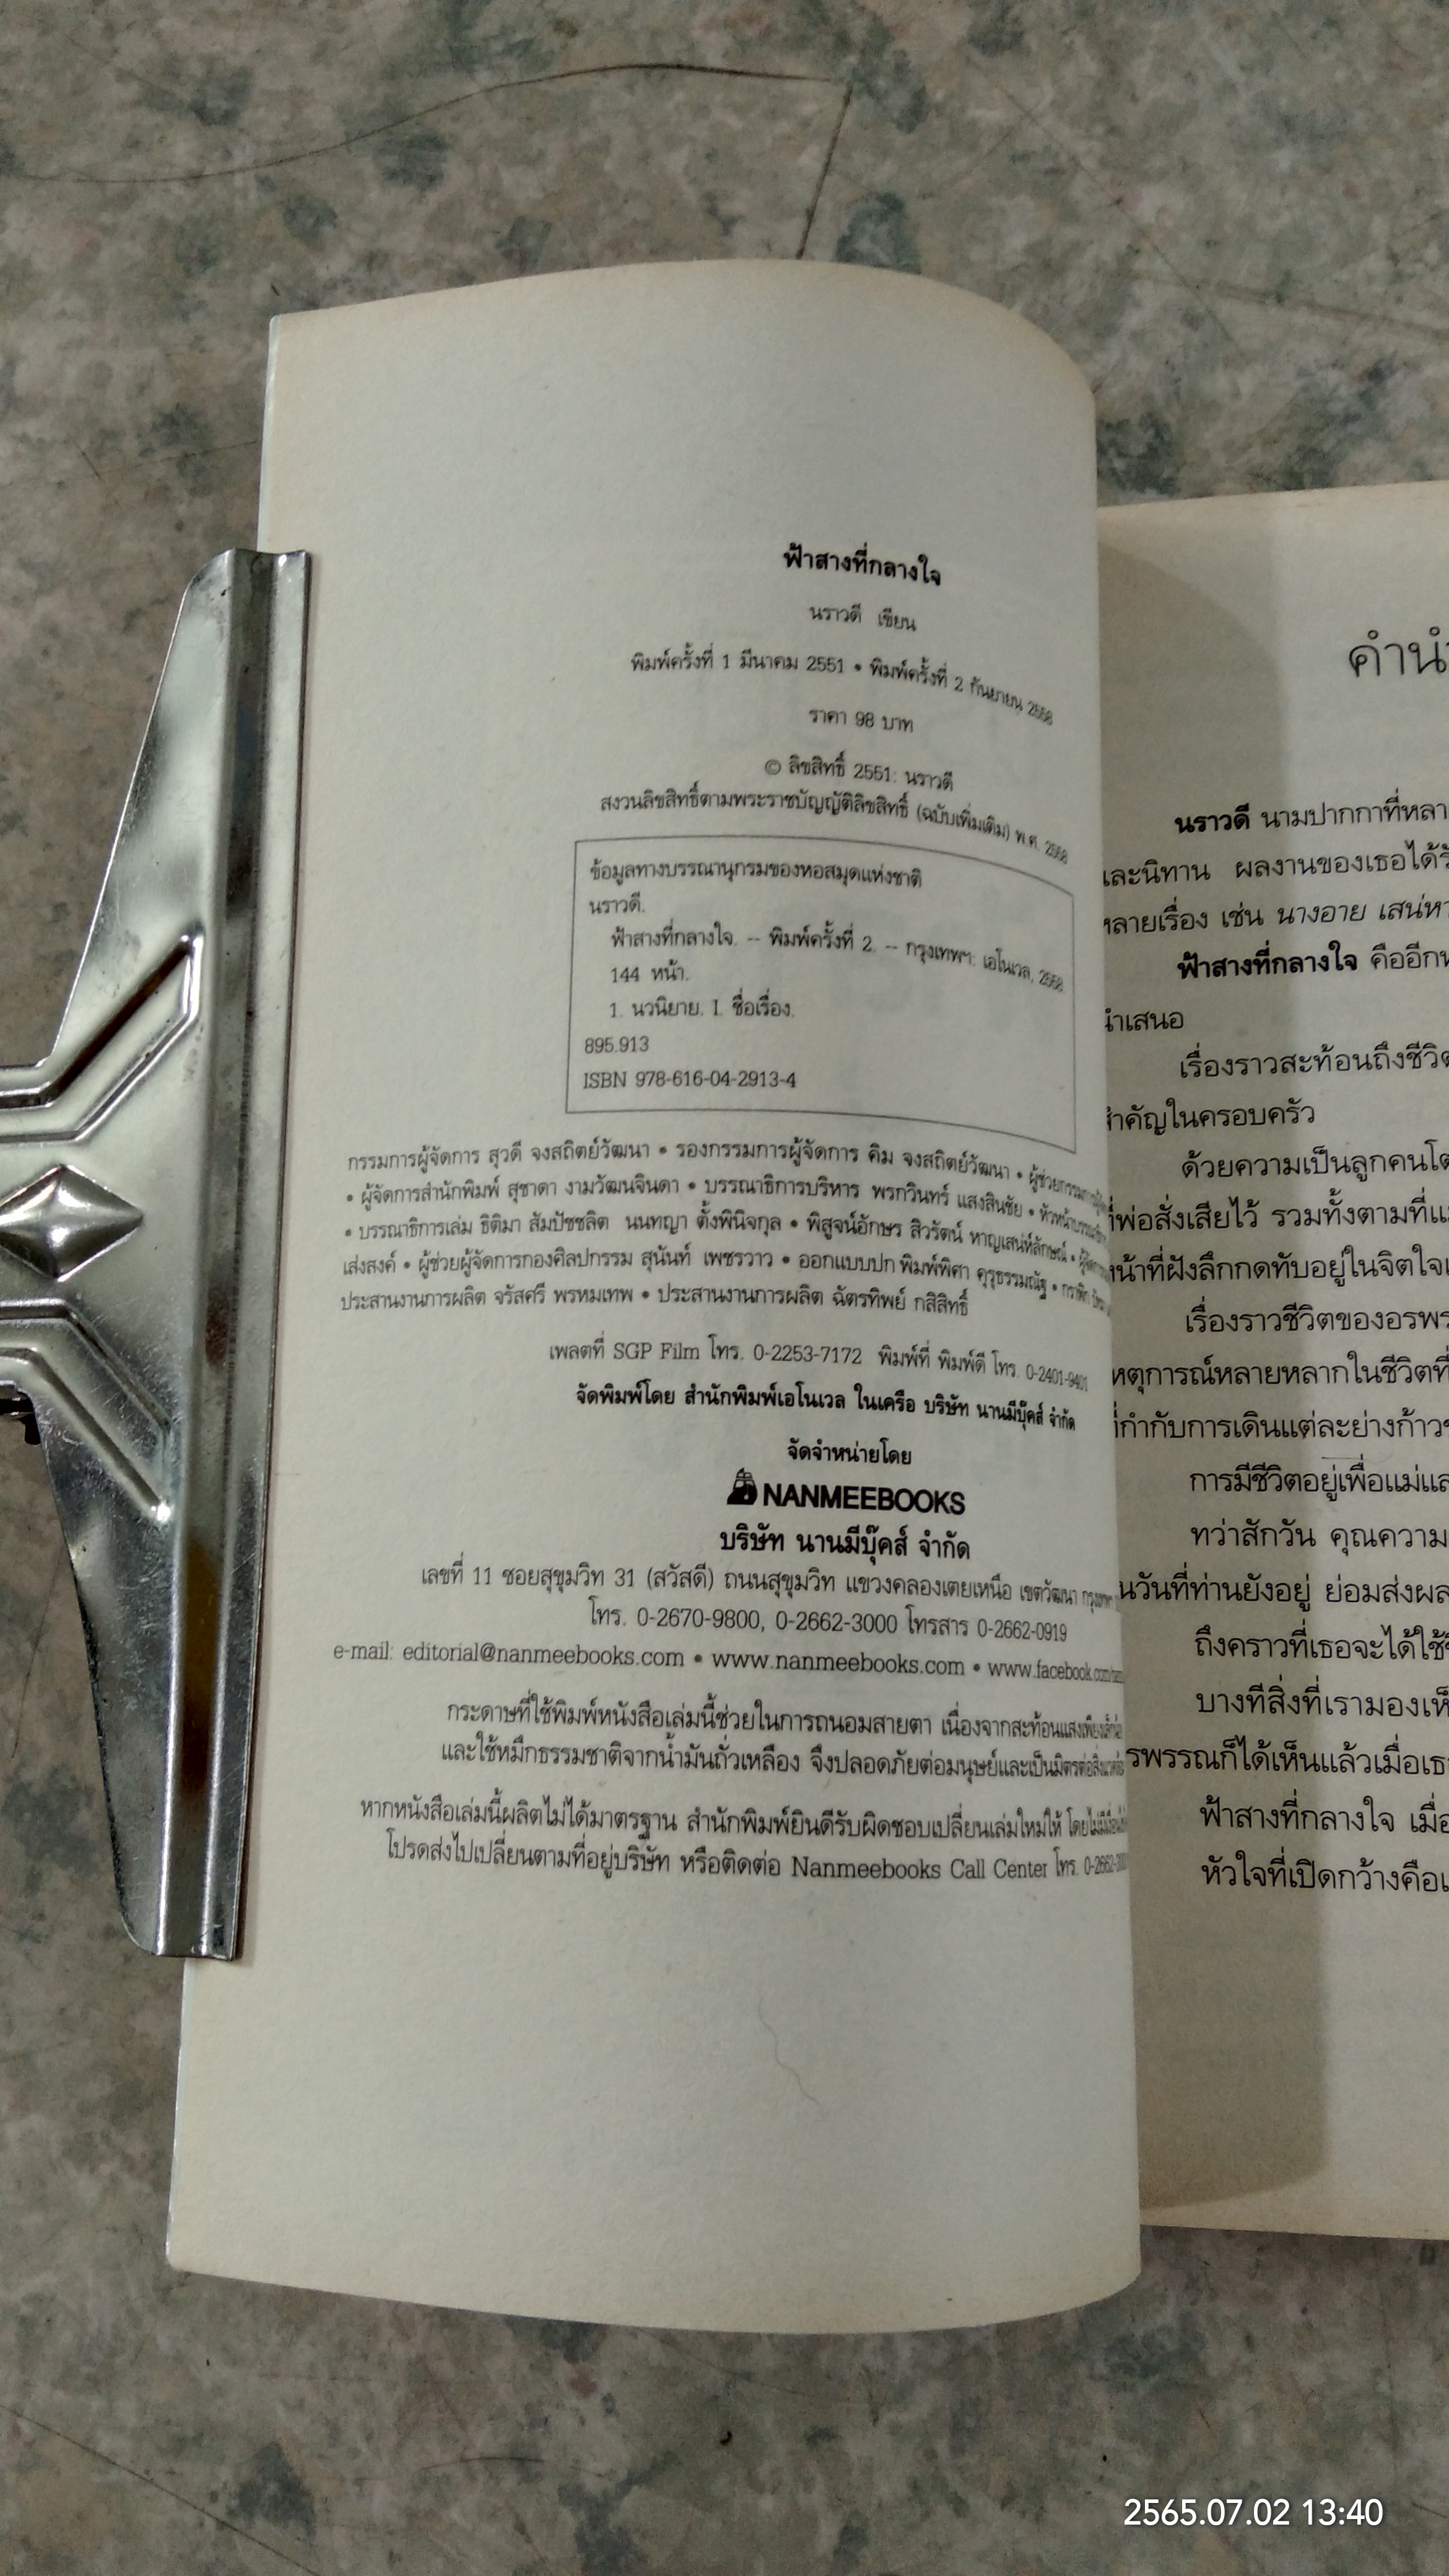 ฟ้าสางที่กลางใจ
นราวดี เขียน
พิมพ์ครั้งที่ 1 มีนาคม 2551 • พิมพ์ครั้งที่ 2 กันยายน 2558
ราคา 98 บาท
© ลิขสิทธิ์ 2551: นราวดี
สงวนลิขสิทธิ์ตามพระราชบัญญัติลิขสิทธิ์ (ฉบับเพิ่มเติม) พ.ศ. 2558
ข้อมูลทางบรรณานุกรมของหอสมุดแห่งชาติ
นราวดี.
ฟ้าสางที่กลางใจ. -- พิมพ์ครั้งที่ 2. -- กรุงเทพฯ: เอโนเวล, 2558
144 หน้า.
1. นวนิยาย. I. ชื่อเรื่อง.
895.913
ISBN 978-616-04-2913-4
กรรมการผู้จัดการ สุวดี จงสถิตย์วัฒนา • รองกรรมการผู้จัดการ คิม จงสถิตย์วัฒนา •
• ผู้จัดการสำนักพิมพ์ สุชาดา งามวัฒนจินดา • บรรณาธิการบริหาร พรกวินทร์ แสงสินชัย •
• บรรณาธิการเล่ม ธิติมา สัมปัชชลิต นนทญา ตั้งพินิจกุล • พิสูจน์อักษร สิวรัตน์ หาญเสน่ห์ลักษณ์ •
เส่งสงค์ • ผู้ช่วยผู้จัดการกองศิลปกรรม สุนันท์ เพชรวาว • ออกแบบปก พิมพ์พิศา คุรุธรรมณัฐ •
ประสานงานการผลิต จรัสศรี พรหมเทพ • ประสานงานการผลิต ฉัตรทิพย์ กสิสิทธิ์
เพลตที่ SGP Film โทร. 0-2253-7172 พิมพ์ที่ พิมพ์ดี โทร. 0-2401-9401
จัดพิมพ์โดย สำนักพิมพ์เอโนเวล ในเครือ บริษัท นานมีบุ๊คส์ จำกัด
จัดจำหน่ายโดย
NANMEEBOOKS
บริษัท นานมีบุ๊คส์ จำกัด
เลขที่ 11 ซอยสุขุมวิท 31 (สวัสดี) ถนนสุขุมวิท แขวงคลองเตยเหนือ เขตวัฒนา
โทร. 0-2670-9800, 0-2662-3000 โทรสาร 0-2662-0919
e-mail: editorial@nanmeebooks.com • www.nanmeebooks.com • www.facebook.com
กระดาษที่ใช้พิมพ์หนังสือเล่มนี้ช่วยในการถนอมสายตา เนื่องจากสะท้อนแสงเพียง
และใช้หมึกธรรมชาติจากน้ำมันถั่วเหลือง จึงปลอดภัยต่อมนุษย์และเป็นมิตรต่อ
หากหนังสือเล่มนี้ผลิตไม่ได้มาตรฐาน สำนักพิมพ์ยินดีรับผิดชอบเปลี่ยนเล่มใหม่ให้ โดยไม่มี
โปรดส่งไปเปลี่ยนตามที่อยู่บริษัท หรือติดต่อ Nanmeebooks Call Center โทร.
คำนำ
นราวดี นามปากกาที่หลา
และนิทาน ผลงานของเธอได้รั
หลายเรื่อง เช่น นางอาย เสน่หา
ฟ้าสางที่กลางใจ คืออีก
นำเสนอ
เรื่องราวสะท้อนถึงชีวิต
สำคัญในครอบครัว
ด้วยความเป็นลูกคนโต
ที่พ่อสั่งเสียไว้ รวมทั้งตามที่แ
หน้าที่ฝังลึกกดทับอยู่ในจิตใจ
เรื่องราวชีวิตของอรพร
หตุการณ์หลายหลากในชีวิตที่
ที่กำกับการเดินแต่ละย่างก้าว
การมีชีวิตอยู่เพื่อแม่แล
ทว่าสักวัน คุณความ
นวันที่ท่านยังอยู่ ย่อมส่งผล
ถึงคราวที่เธอจะได้ใช้
บางทีสิ่งที่เรามองเห็
รพรรณก็ได้เห็นแล้วเมื่อเธ
ฟ้าสางที่กลางใจ เมื่อ
หัวใจที่เปิดกว้างคือ
2565.07.02 13:40